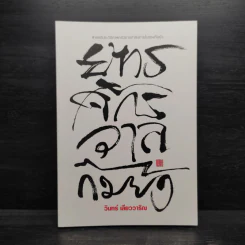 ยุทธ
จักร
วาล
กิมย้ง
วินทร์ เลียววาริณ